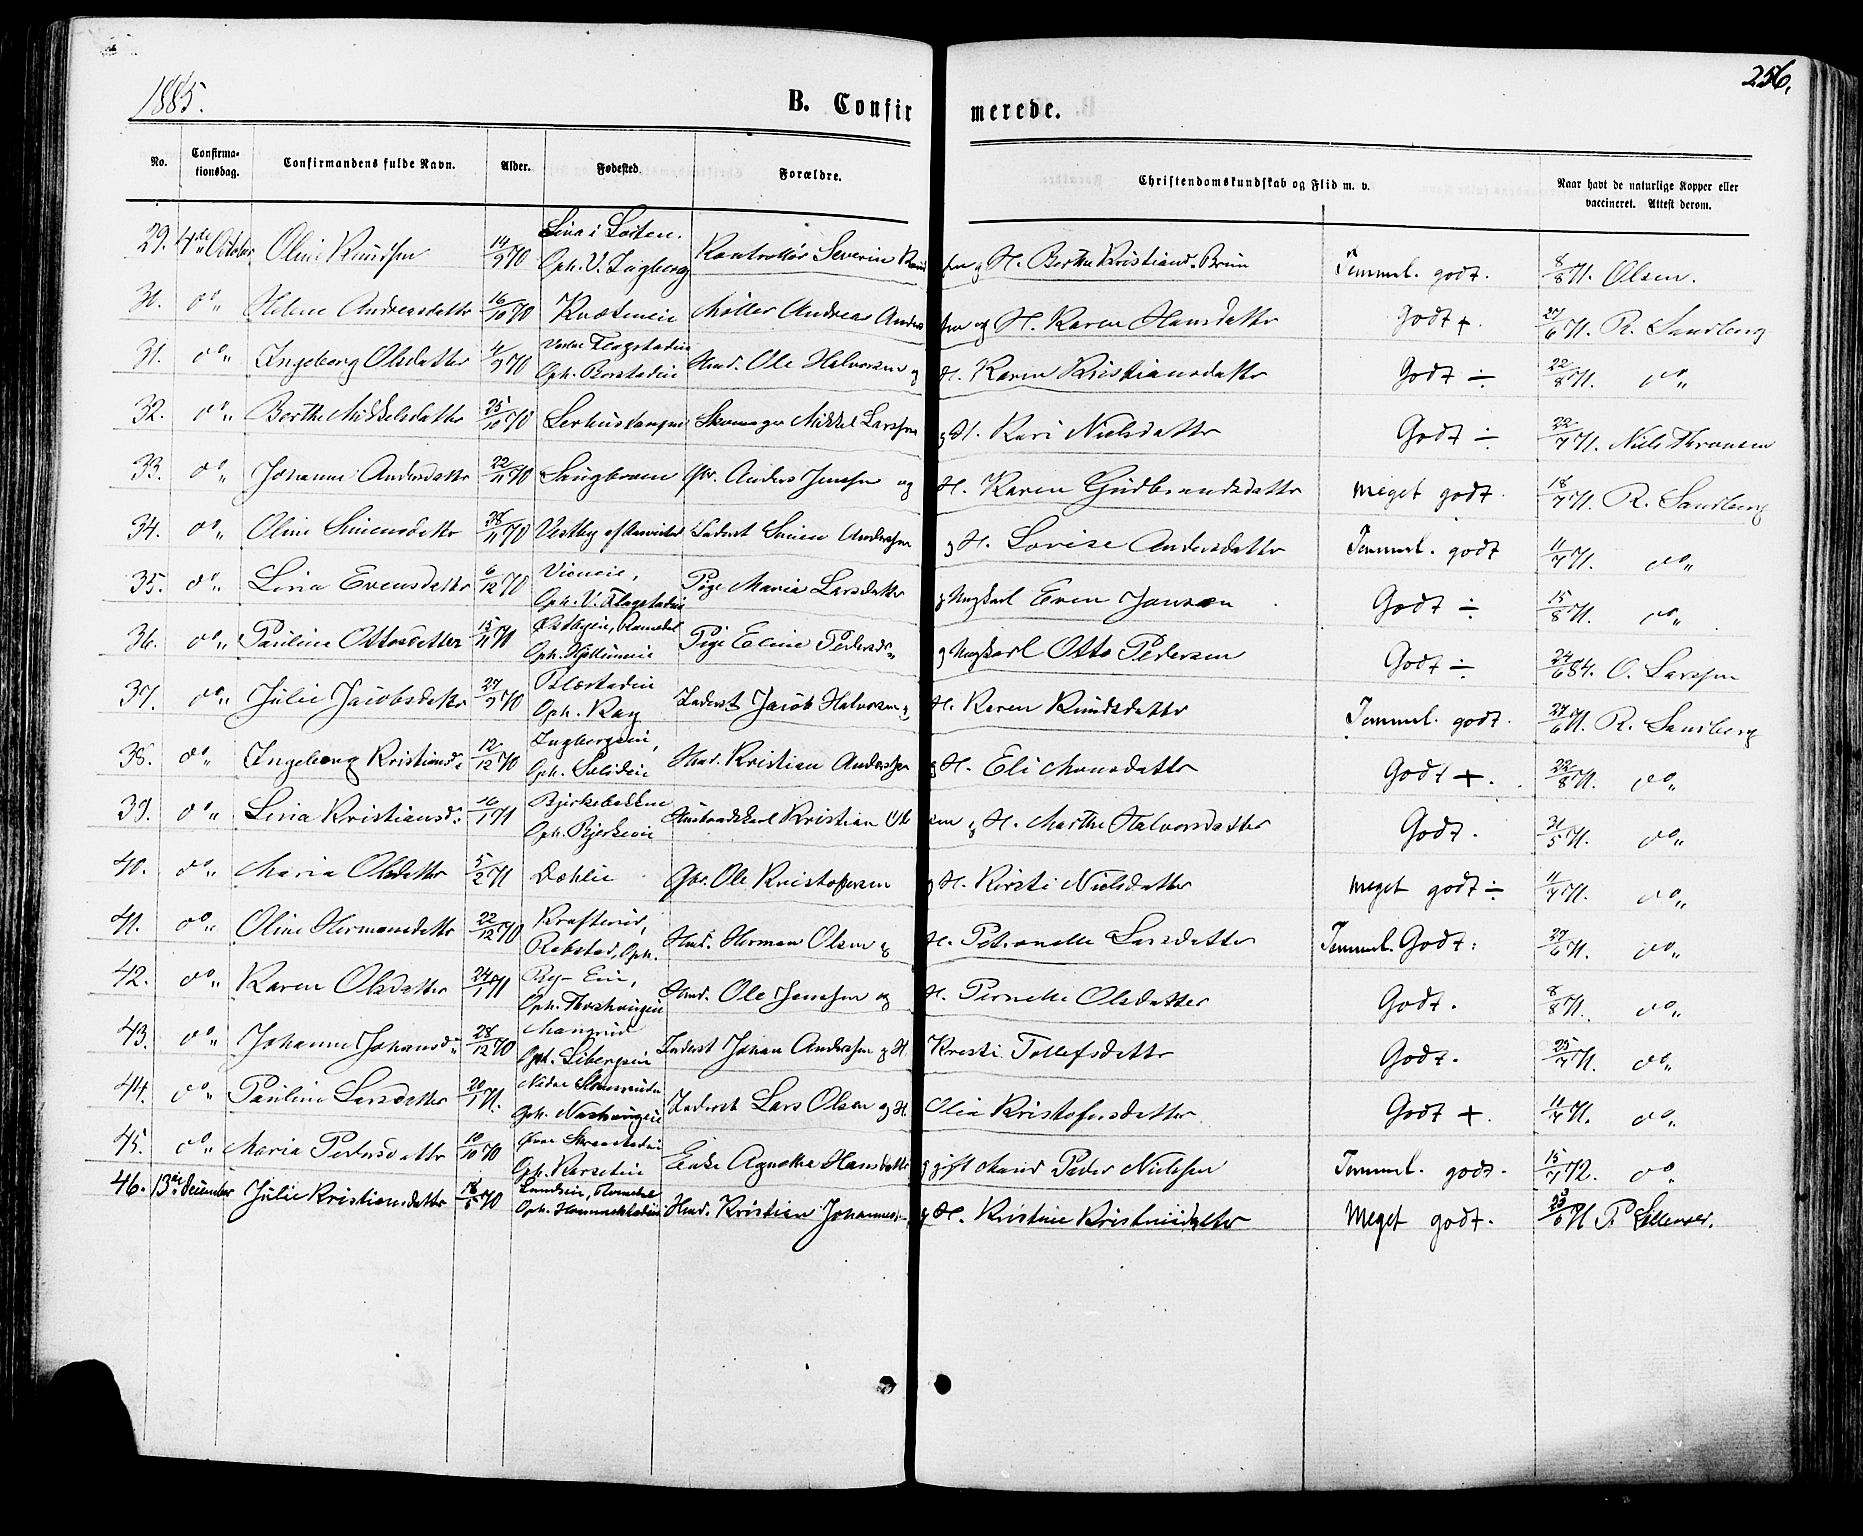 1885.
B. Confirmerede.
256.
No. Confirmationsdag. Confirmandens fulde Navn. Alder. Fødested. Forældre. Christendomskundskab og Flid m. v. Naar havt de naturlige Kopper eller vaccineret. Attest derom.
29. 4de October Oline Knudsen 14/9 70 Lena i Løiten. Oph. V. Ingberg Kontrollør Severin Knudsen og H. Berthe Kristiansd. Brun Temmel. godt. 8/8 71. Olsen.
31. do Helene Andreasdatter 16/10 70 Møller Andreas Andersen og H. Karen Hansdatter Godt +. 27/6 71. R. Sandberg
31. do Ingeborg Olsdatter 4/9 70 Vestre Flagstadeie Oph. Borstadeie Hmd. Ole Halvorsen og H. Karen Kristiansdatter Godt ÷ 22/8 71. do
32. do Berthe Mikkelsdatter 25/10 70 Skomager Mikkel Larssen og H. Kari Nielsdatter Godt ÷ 22/7 71. Niels Thronsen
33. do Johanne Andersdatter 22/11 70 Gbr. Anders Jenssen og H. Karen Gudbrandsdatter Meget godt. 18/7 71. R. Sandberg
34. do Oline Simensdatter 28/11 70 Vestby Inderst Simen Anderssen og H. Lovise Andersdatter Temmel. godt 11/7 71. do
35. do Lina Evensdatter 6/12 70 Oph. V. Flagstadeie Pige Maria Larsdatter og Ungkarl Even Jonsen Godt ÷ 15/8 71. do
36. do Pauline Ottosdatter 15/11 71 Østbyeie, Romedal Oph. Hjellumeie Pige Eline Pedersd. og Ungkarl Otto Pedersen Godt ÷ 24/6 84. O. Larssen
37. do Julie Jacobsdatter 27/9 70 Blæstadeie Oph. Inderst Jacob Halvorsen og H. Karen Knudsdatter Temmel. godt. 27/6 71. R. Sandberg
38. do Ingeborg Kristiansd. 12/12 70 Ingbergeie, Oph. Hmd. Kristian Anderssen og H. Eli Monsdatter Godt +. 22/8 71. do
39. do Lina Kristiansd. 16/1 71 Bjerkebakken Oph. Bjerkeeie Husmandskarl Kristian Olsen og H. Marthe Halvorsdatter Godt. 31/5 71. do
40. do Maria Olsdatter 5/2 71 Dæhlie Gbr. Ole Kristofersen og H. Kirsti Nielsdatter Meget godt ÷ 11/7 71. do
41. do Oline Hermansdatter 22/12 70 Rabstad, Oph. Hmd. Herman Olsen og H. Petronelle Larsdatter Temmel. Godt. 27/6 71. do
42. do Karen Olsdatter 24/1 71 Ry-Eie, Oph. Hmd. Ole Jenssen og H. Pernelle Olsdatter Godt. 8/8 71. do
43. do Johanne Johansd. 28/12 70 Oph. Libergseie Inderst Johan Anderssen og H. Kirsti Tollefsdatter Godt. 25/7 71. do
44. do Pauline Larsdatter 20/1 71. Oph. Inderst Lars Olsen og H. Olea Kristofersdatter Godt +. 11/7 71. do
45. do Maria Pedersdatter 10/10 70 Oph. Enke Agnethe Hansdatter og gift Mand Peder Nielssen Temmel. godt. 15/7 72. do
46. 13de December Julie Kristiansdatter 18/5 70 Romedal Oph. Hommelstadeie Hmd. Kristian Johannes. og H. Kristine Kristiansdatter Meget godt. 23/6 71